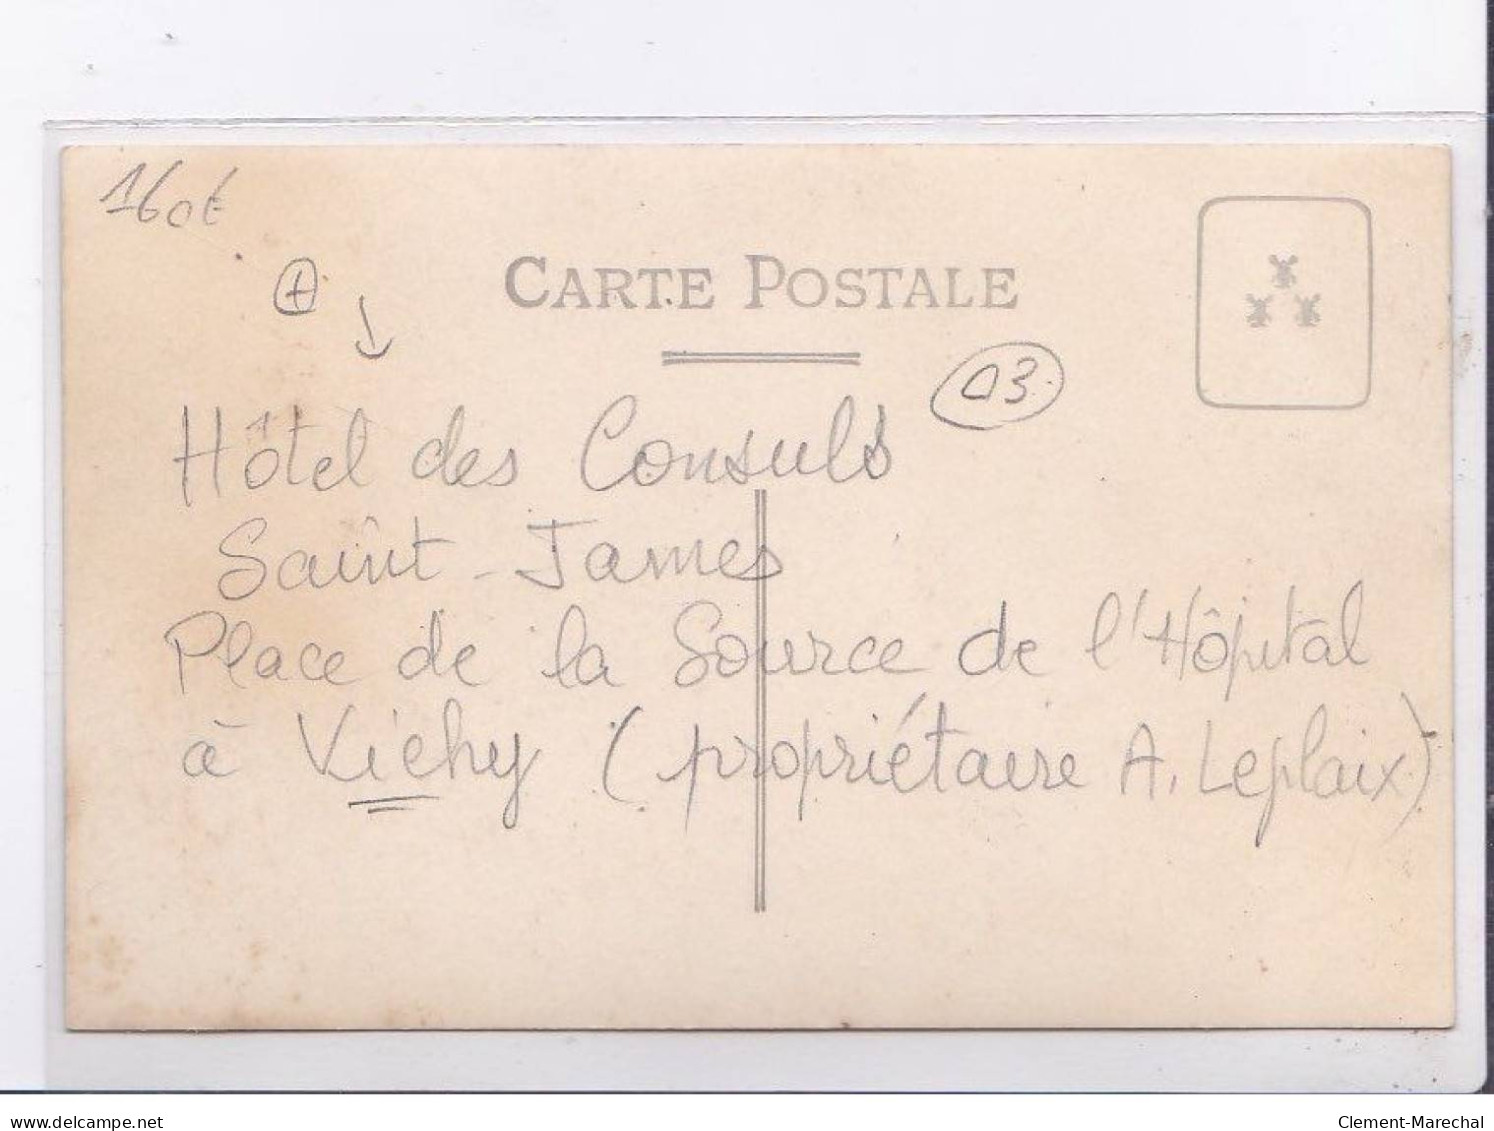 160€
CARTE POSTALE
03
Hôtel des Consuls
Saint-James
Place de la Source de l'Hôpital
à Vichy (propriétaire A. Leplaix)
www.delcampe.net
Clement-Marechal